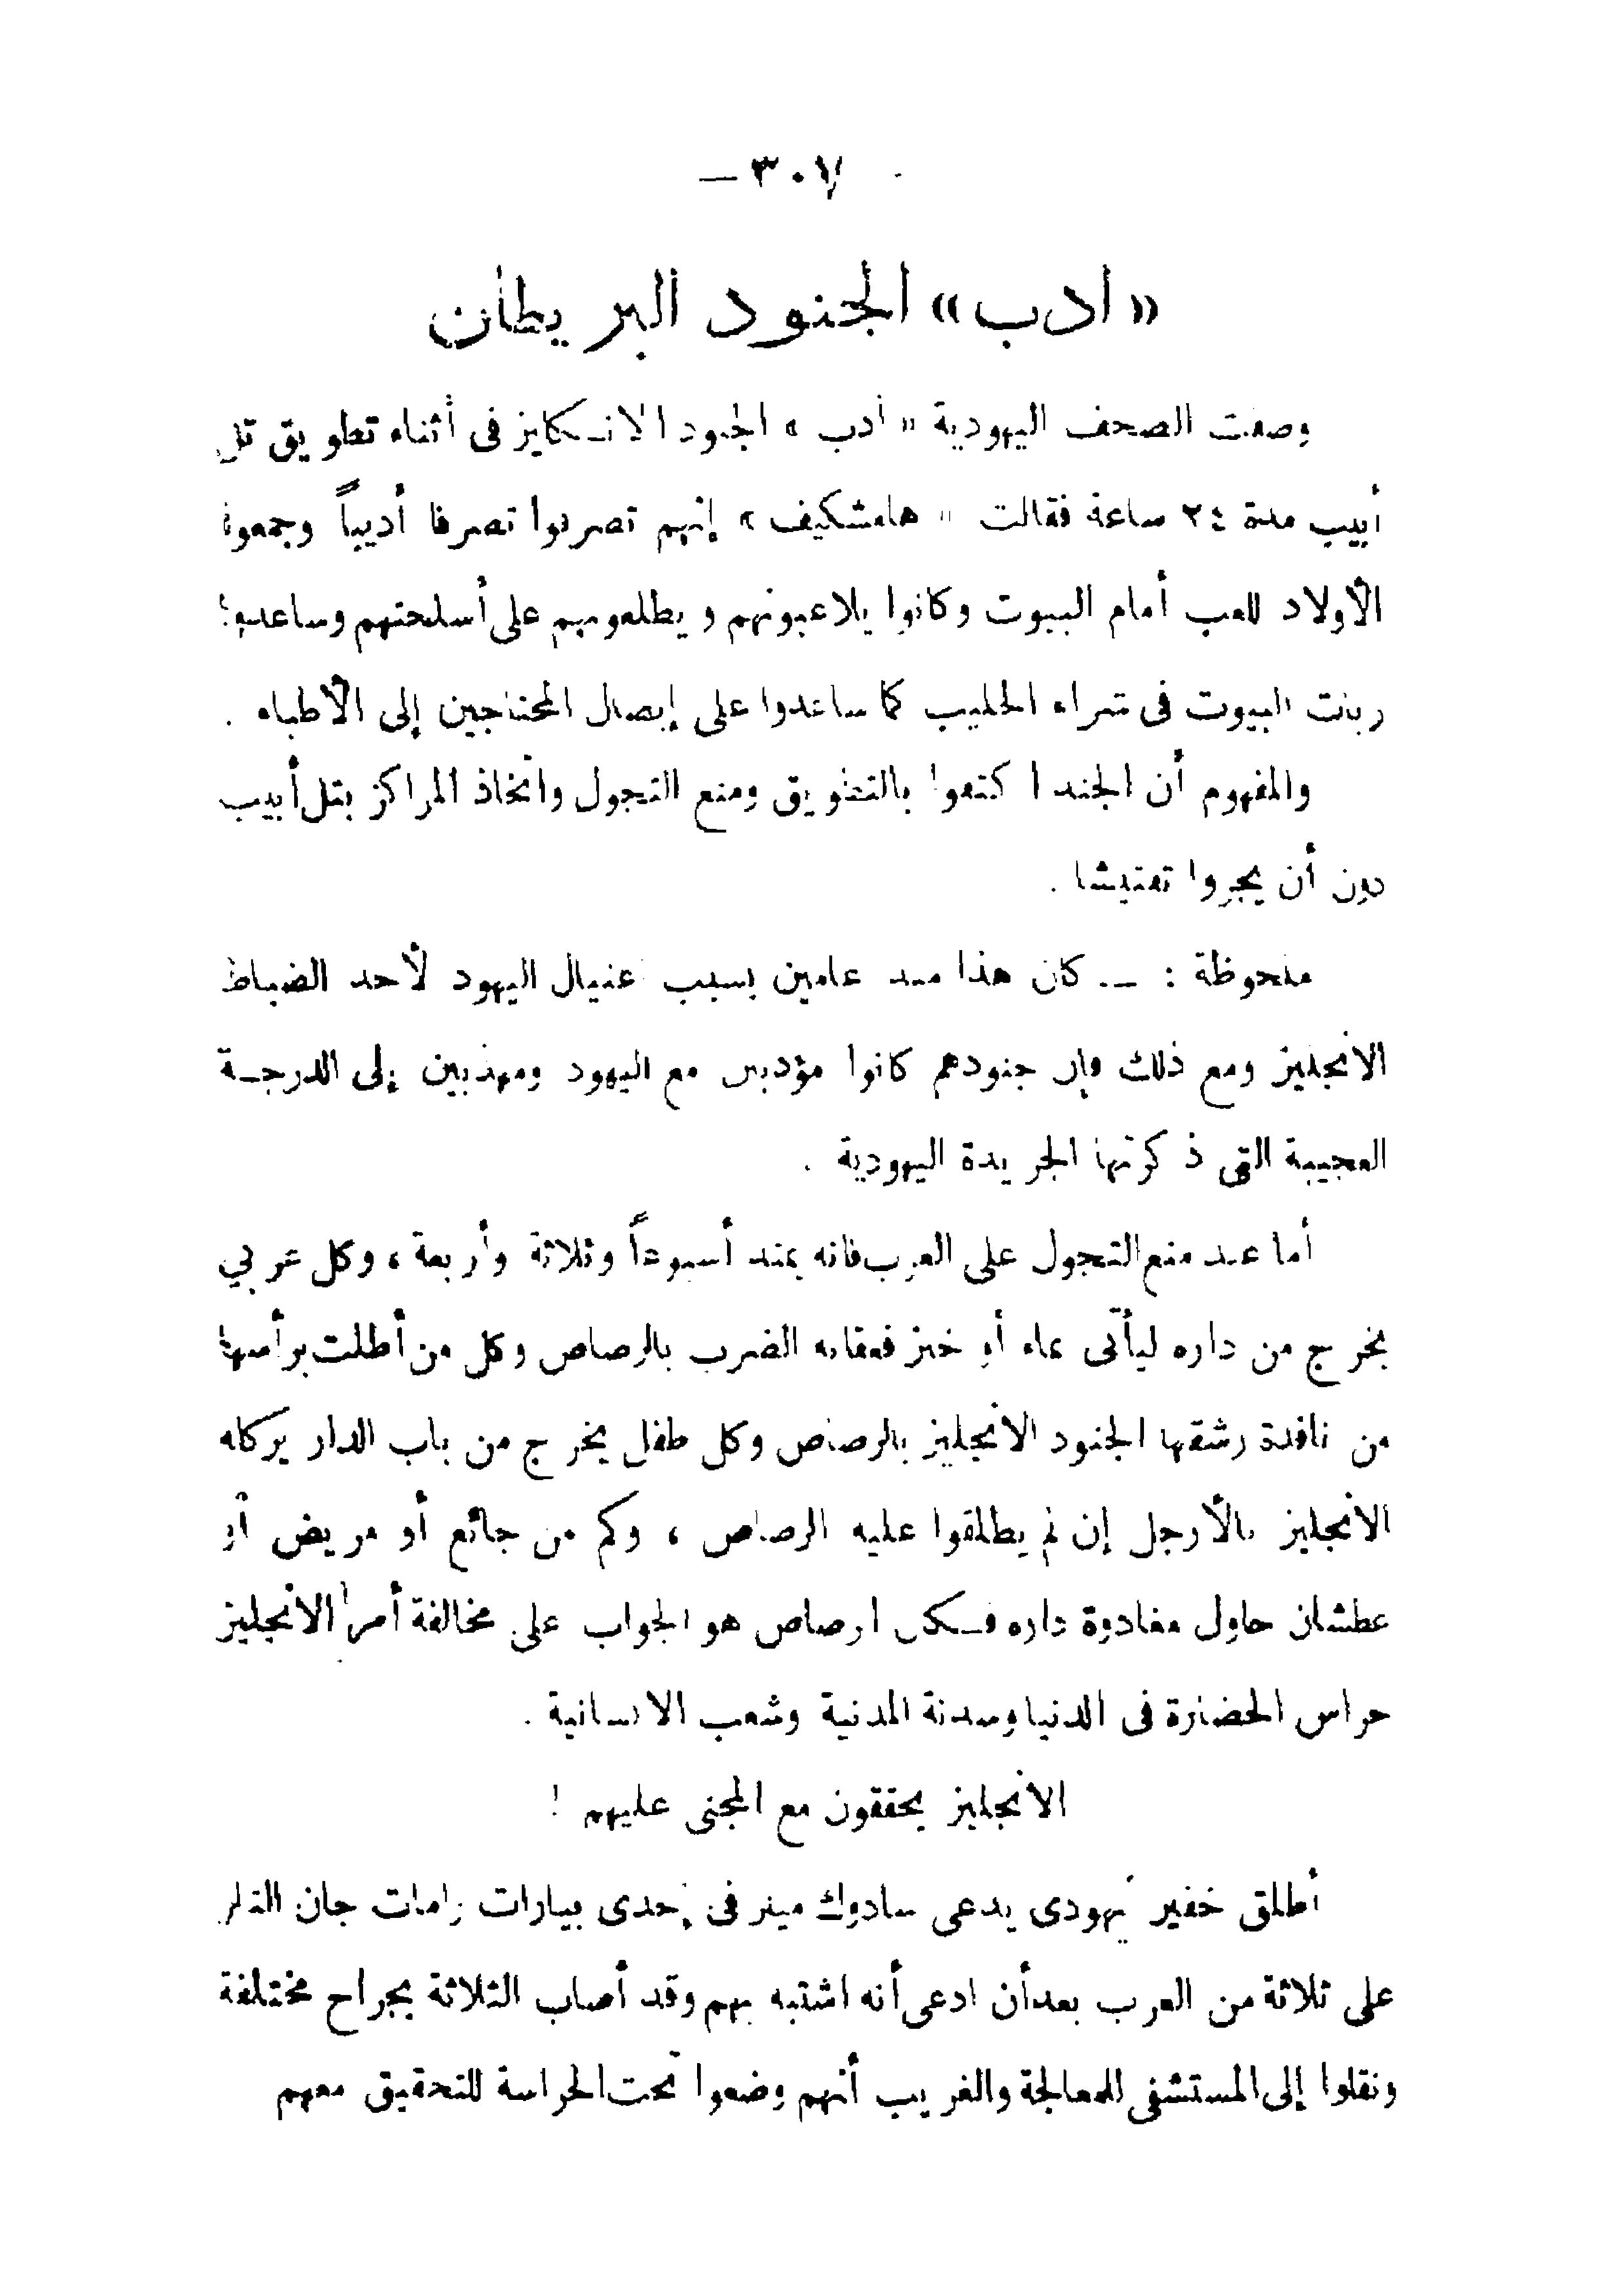 — ٣٠٧
«أدب» الجنود البريطان
وصفت الصحف اليهودية « أدب » الجنود الانكليز فى أثناء تطويق تل
أبيب مدة ٢٤ ساعة فقالت « هامشكيف » إنهم تصرفوا تصرفا أديباً وجمعوا
الأولاد للعب أمام البيوت وكانوا يلاعبونهم ويطلعونهم على أسلحتهم وساعدوا
ربات البيوت فى شراء الحليب كما ساعدوا على إيصال المحتاجين إلى الأطباء .
والمفهوم أن الجند اكتفوا بالتطويق ومنع التجول واتخاذ المراكز بتل أبيب
دون أن يجروا تفتيشا .
ملحوظة : — كان هذا منذ عامين بسبب اغتيال اليهود لأحد الضباط
الانجليز ومع ذلك فإن جنودهم كانوا مؤدبين مع اليهود ومهذبين إلى الدرجة
العجيبة التى ذكرتها الجريدة اليهودية .
أما عند منع التجول على العرب فانه يمتد أسبوعاً وثلاثة وأربعة ، وكل عربي
يخرج من داره ليأتى بماء أو خبز فعقابه الضرب بالرصاص وكل من أطلت برأسها
من نافذة رشقها الجنود الانجليز بالرصاص وكل طفل يخرج من باب الدار يركله
الانجليز بالأرجل إن لم يطلقوا عليه الرصاص ، وكم من جائع أو مريض أو
عطشان حاول مغادرة داره فكان الرصاص هو الجواب على مخالفة أمر الانجليز
حراس الحضارة فى الدنيا وسدنة المدنية وشعب الانسانية .
الانجليز يحققون مع المجنى عليهم !
أطلق خفير يهودى يدعى سادوك مينر فى إحدى بيارات رامات جان النار
على ثلاثة من العرب بعد أن ادعى أنه اشتبه بهم وقد أصاب الثلاثة بجراح مختلفة
ونقلوا إلى المستشفى للمعالجة والغريب أنهم وضعوا تحت الحراسة للتحقيق معهم